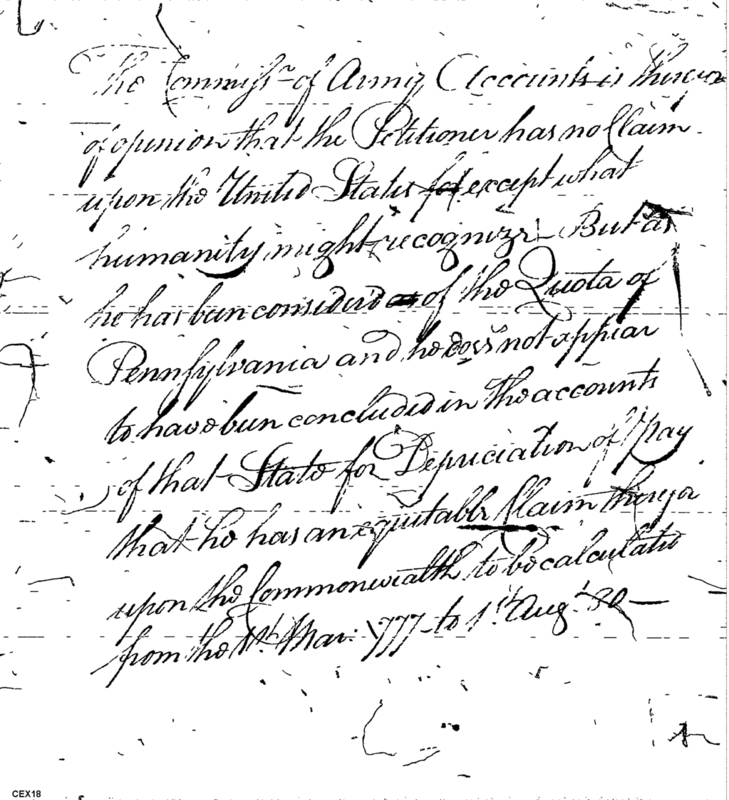 The Commissr. of Army Accounts is therefore
of opinion that the Petitioner has no Claim
upon the United States except what
humanity might recognize. But as
he has been considered as of the Quota of
Pennsylvania and he does not appear
to have been concluded in the accounts
of that State for Depreciation of Pay
that he has an equitable Claim therefor
upon the Commonwealth to be calculated
from the 1st. Mar: 1777 to 1st. Aug. 80 —
CEX18